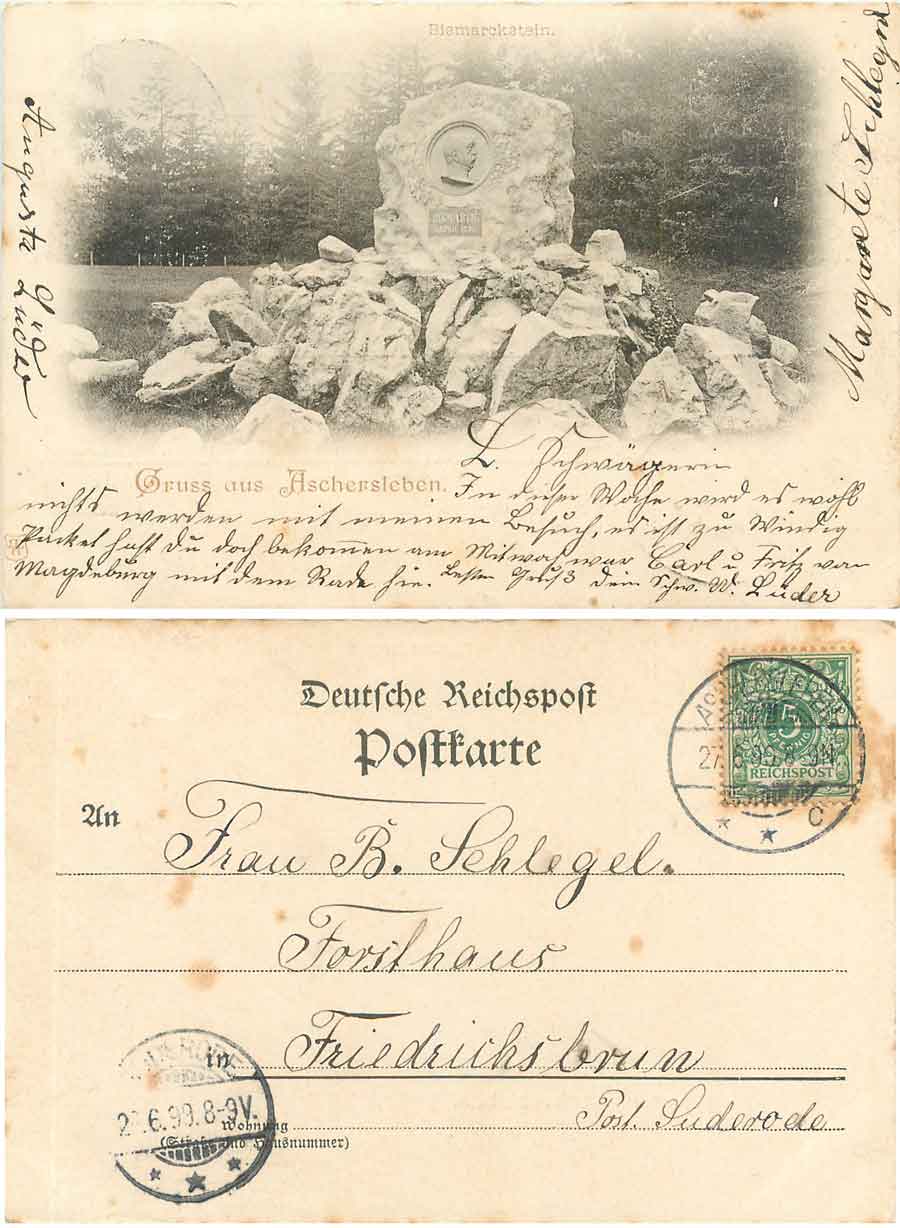 Bismarckstein.
Auguste Lüder
Margarete Schlegel
Gruss aus Aschersleben.
L. Schwägerin
In dieser Woche wird es wohl
nichts werden mit meinen Besuch, es ist zu Windig
Packet hast Du doch bekommen am Mitwoch war Carl u Fritz von
Magdeburg mit dem Rade hie. besten Gruß dein Schw. W. Lüder
Deutsche Reichspost
Postkarte
ASCHERSLEBEN
27.6.99.8-9N.
C
5
PFENNIG
REICHSPOST
An
Frau B. Schlegel.
Forsthaus
in Friedrichsbrun
Post. Suderode
6.99.8-9V.
Wohnung
(Straße und Hausnummer)